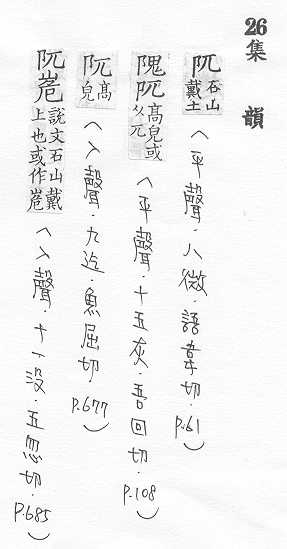 26集韻
阢石山戴土（平聲．八微．語韋切．P.61）
隗阢高皃或从元（平聲．十五灰．吾回切．P.108）
阢高皃（入聲．九迄．魚屈切．P.677）
阢峞說文石山戴上也或作峞（入聲．十一没．五忽切．P.685）